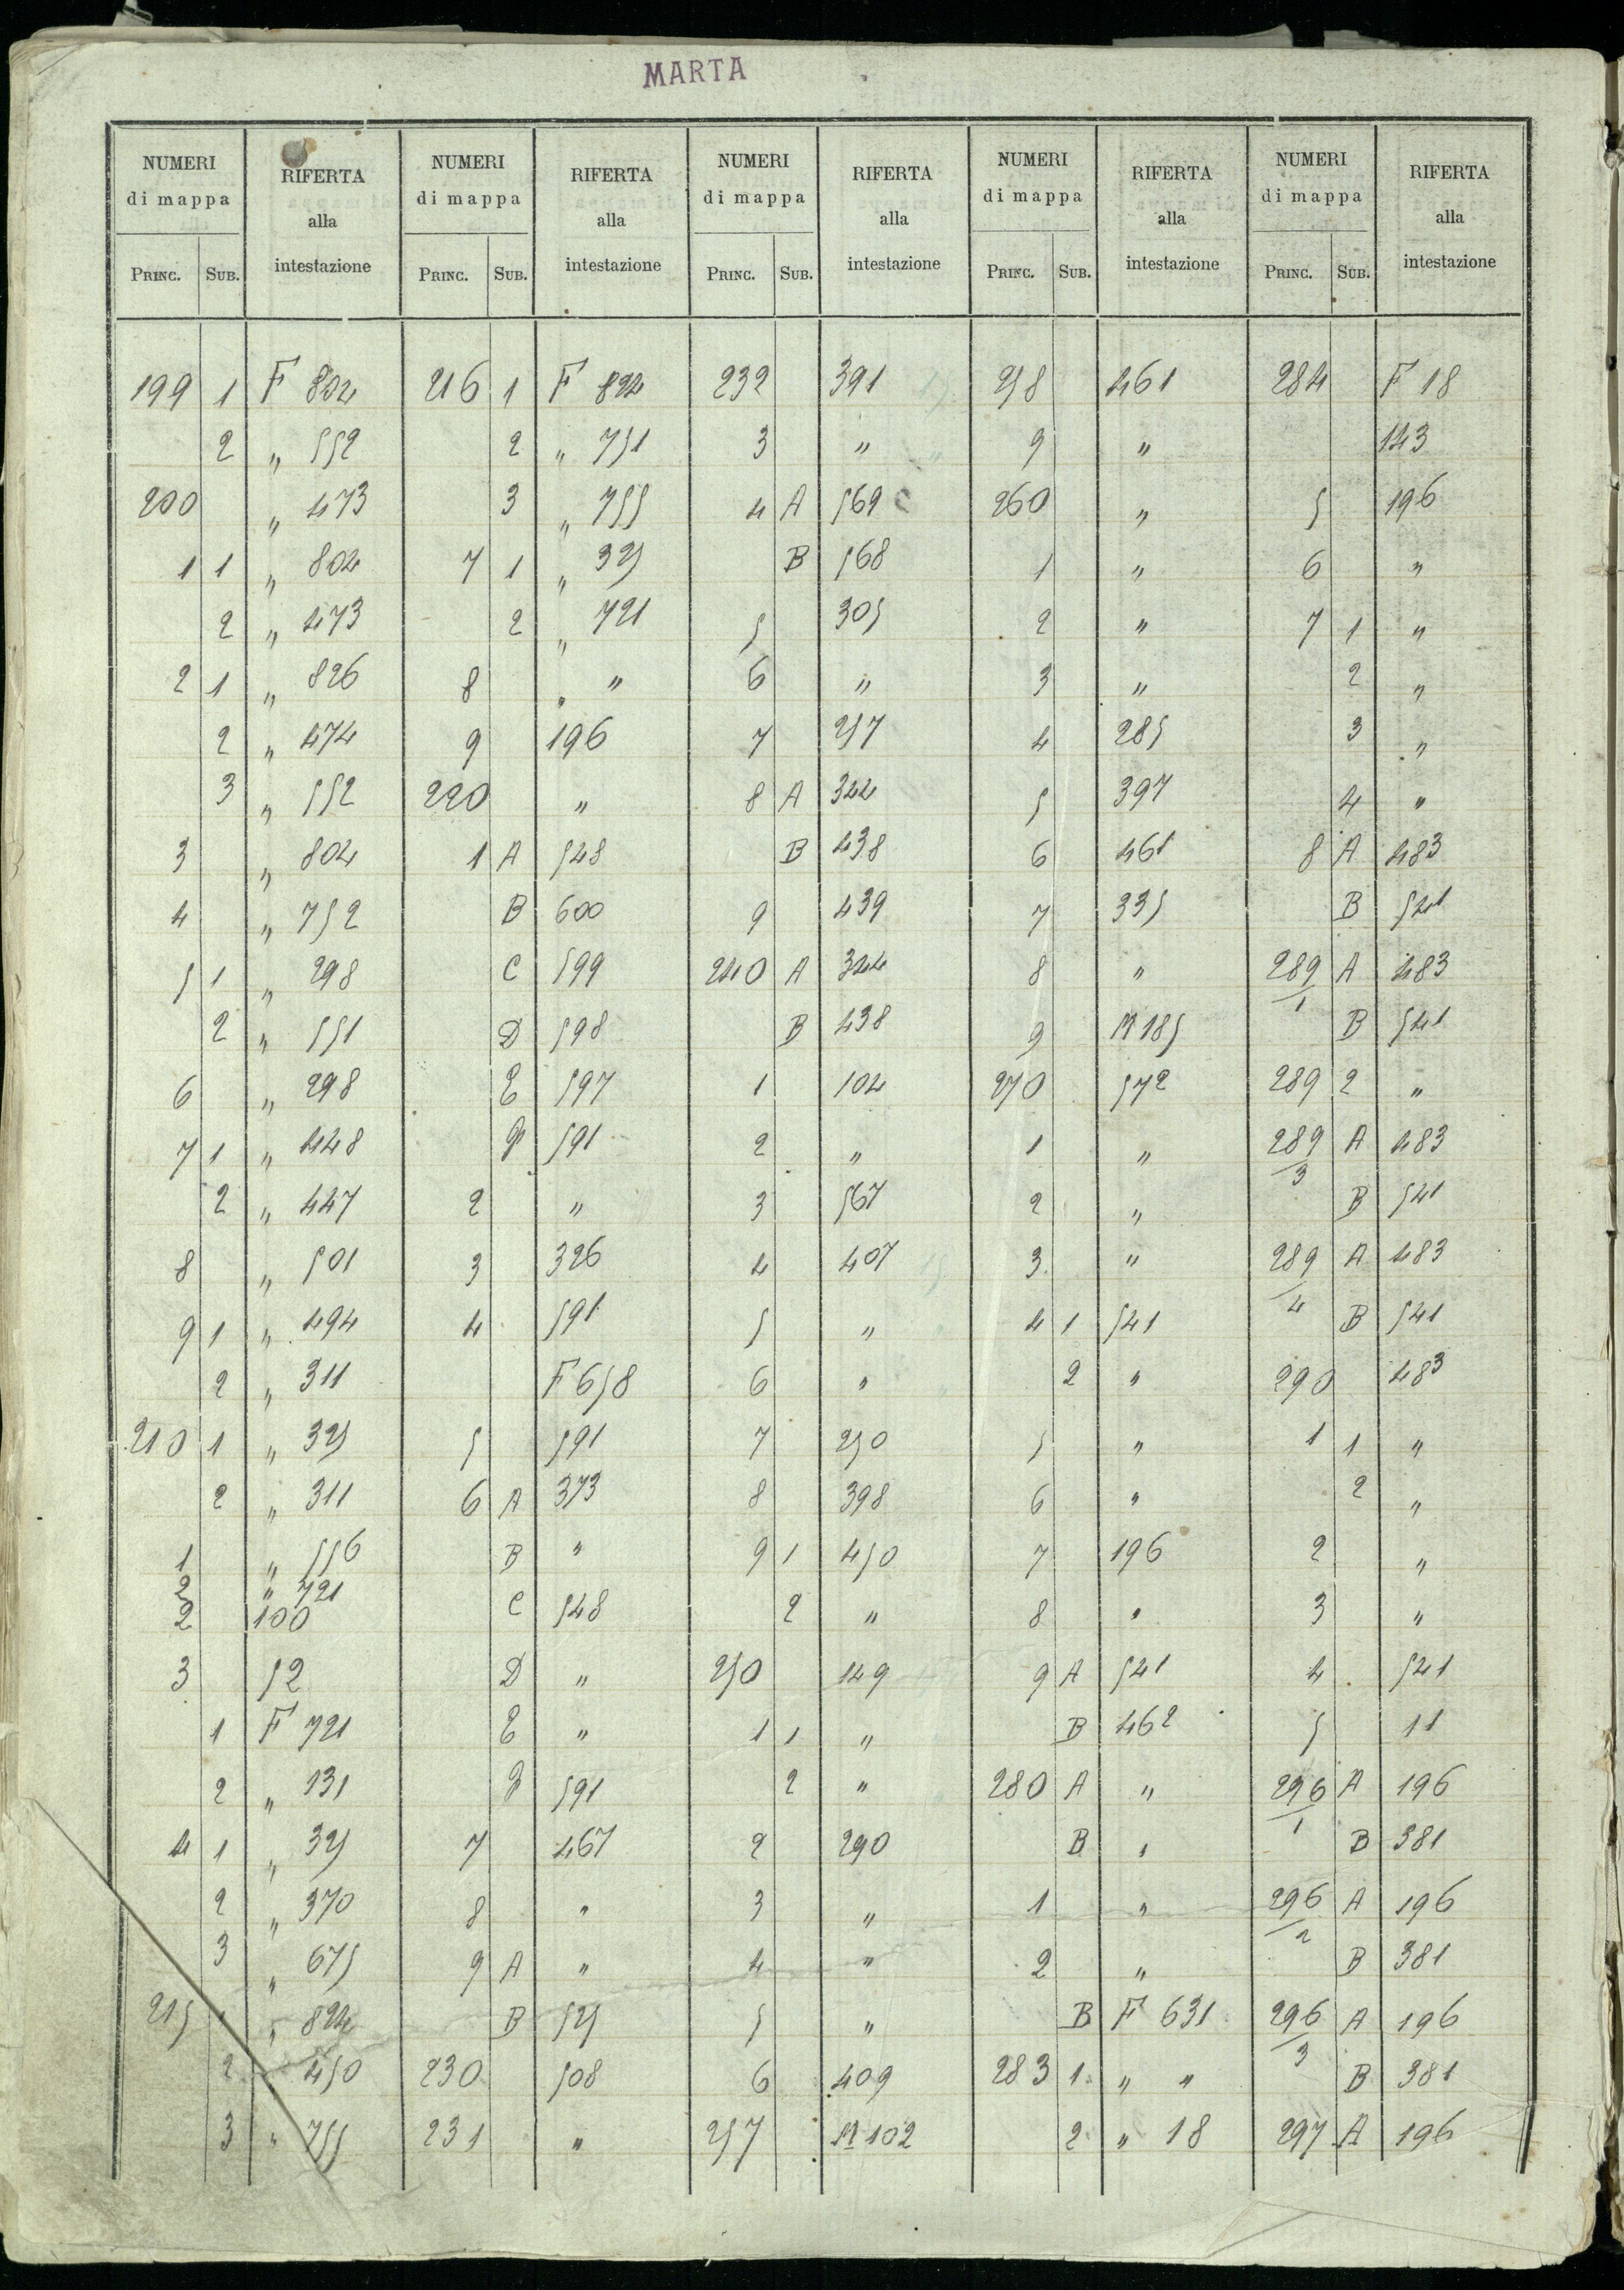 MARTA
NUMERI di mappa RIFERTA alla intestazione NUMERI di mappa RIFERTA alla intestazione NUMERI di mappa RIFERTA alla intestazione NUMERI di mappa RIFERTA alla intestazione NUMERI di mappa RIFERTA alla intestazione
PRINC. SUB. PRINC. SUB. PRINC. SUB. PRINC. SUB. PRINC. SUB.
199 1 F 804 216 1 F 824 232 391 258 461 284 F 18
2 " 552 2 " 751 3 " 9 " 143
200 " 473 3 " 755 4 A 569 260 " 5 196
1 1 " 804 7 1 " 325 B 568 1 " 6 "
2 " 473 2 " 721 5 305 2 " 7 1 "
2 1 " 826 8 " " 6 " 3 " 2 "
2 " 474 9 196 7 257 4 285 3 "
3 " 552 220 " 8 A 344 5 397 4 "
3 " 804 1 A 548 B 438 6 461 8 A 483
4 " 752 B 600 9 439 7 335 B 541
5 1 " 298 C 599 240 A 344 8 " 289/1 A 483
2 " 551 D 598 B 438 9 M 185 B 541
6 " 298 E 597 1 104 270 572 289 2 "
7 1 " 448 F 591 2 " 1 " 289/3 A 483
2 " 447 2 " 3 567 2 " B 541
8 " 501 3 326 4 407 3 " 289/4 A 483
9 1 " 494 4 591 5 " 4 1 541 B 541
2 " 311 F 658 6 " 2 " 290 483
210 1 " 325 5 591 7 250 5 " 1 1 "
2 " 311 6 A 373 8 398 6 " 2 "
1 " 556 B " 9 1 450 7 196 2 "
2 " 721
2 100 C 548 2 " 8 " 3 "
3 52 D " 250 149 9 A 541 4 541
1 F 721 E " 1 1 " B 462 5 11
2 " 131 F 591 2 " 280 A " 296/1 A 196
4 1 " 325 7 467 2 290 B " B 381
2 " 370 8 " 3 " 1 " 296/2 A 196
3 " 675 9 A " 4 " 2 " B 381
215 1 " 824 B 525 5 " B F 631 296/3 A 196
2 " 450 230 508 6 409 283 1 " " B 381
3 " 755 231 " 257 M 102 2 " 18 297 A 196